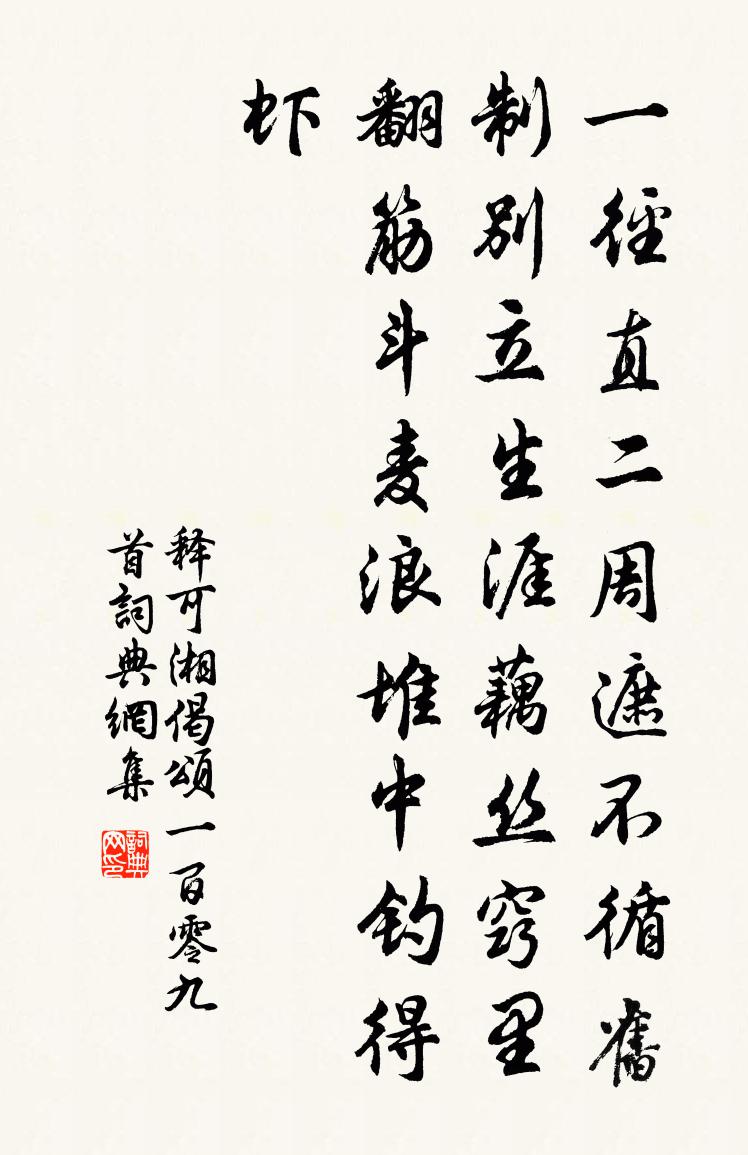 一径直二周遮不循舊
制别立生涯藕丝窍里
翻筋斗麦浪堆中钓得
虾
释可湘偈頌一百零九
首詞典網集
詞典网印